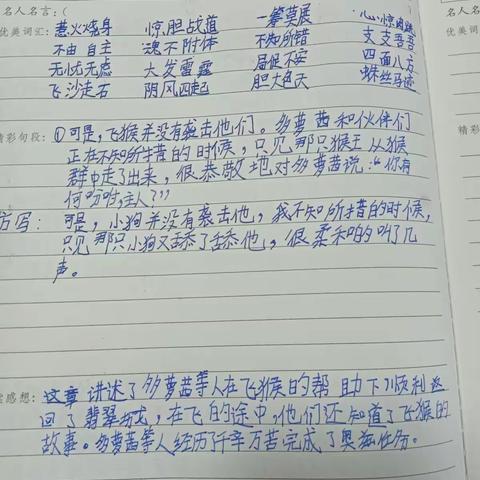 名人名言：（
名人名
优美词汇：惹火烧身 惊胆战道 一筹莫展 心惊肉跳
优美词
不由自主 魂不附体 不知所错 支支吾吾
无忧无虑 大发雷霆 局促不安 四面八方
飞沙走石 阴风四起 胆大包天 蛛丝马迹
精彩句段：①可是，飞猴并没有袭击他们。多萝茜和伙伴们
精彩
正在不知所措的时候，只见那只猴王从猴
群中走了出来，很恭敬地对多萝茜说：“你有
何吩咐，主人？”
方写：可是，小狗并没有袭击他，我不知所措的时候，
只见那只小狗又舔了舔他，很柔和的叫了几
声。
感想：这章讲述了多萝茜等人在飞猴的帮助下顺利返
回了翡翠城，在飞的途中，他们还知道了飞猴的
故事。多萝茜等人经历了千辛万苦完成了奥兹任务。